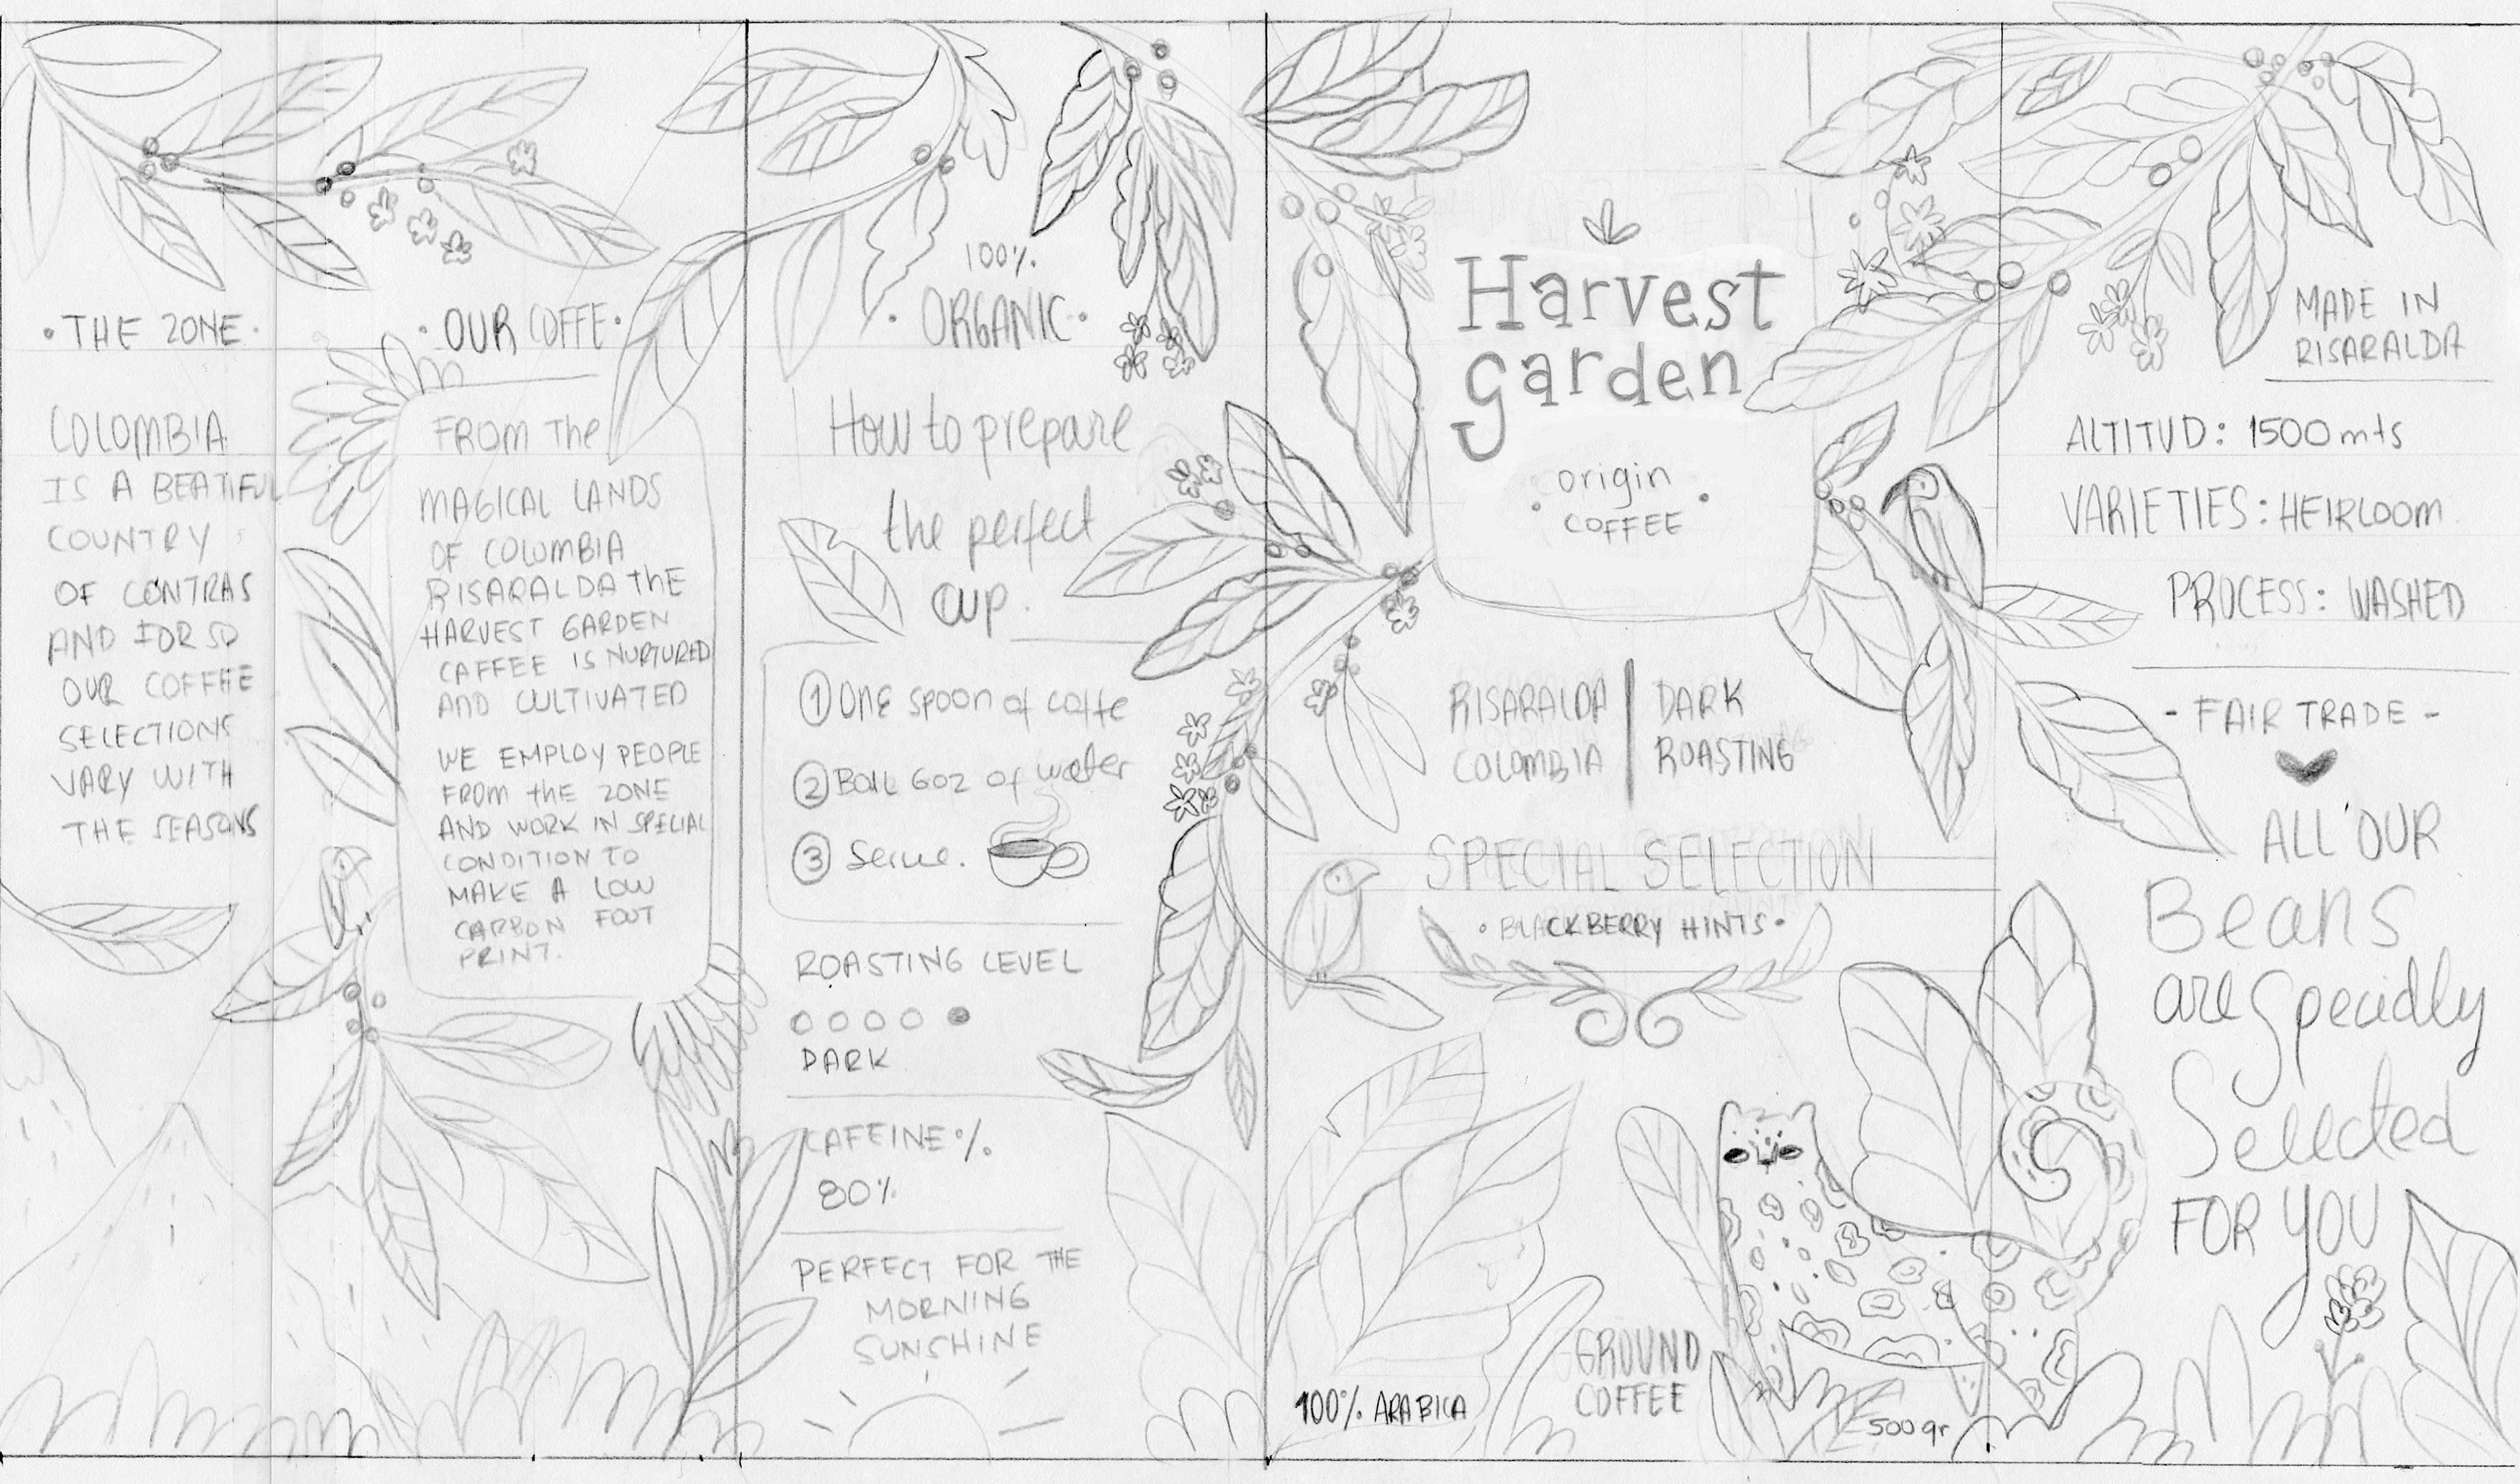 • THE ZONE •
COLOMBIA
IS A BEATIFUL
COUNTRY
OF CONTRAS
AND FOR SO
OUR COFFEE
SELECTIONS
VARY WITH
THE SEASONS
• OUR COFFE •
FROM The
MAGICAL LANDS
OF COLUMBIA
RISARALDA THE
HARVEST GARDEN
CAFFEE IS NURTURED
AND CULTIVATED
WE EMPLOY PEOPLE
FROM thE ZONE
AND WORK IN SPECIAL
CONDITION TO
MAKE A LOW
CARBON FOUT
PRINT.
100%
• ORGANIC •
How to prepare
the perfect
cup.
1 ONE spoon of coffe
2 BOIL 6oz of water
3 Serve.
ROASTING LEVEL
DARK
CAFEINE %
80%
PERFECT FOR THE
MORNING
SUNSHINE
Harvest
garden
• origin •
COFFEE
RISARALDA | DARK
COLOMBIA | ROASTING
SPECIAL SELECTION
• BLACKBERRY HINTS •
100% ARABICA
GROUND
COFFEE
500gr
MADE IN
RISARALDA
ALTITUD: 1500mts
VARIETIES: HEIRLOOM
PROCESS: WASHED
- FAIR TRADE -
ALL OUR
Beans
are Specially
Selected
FOR YOU